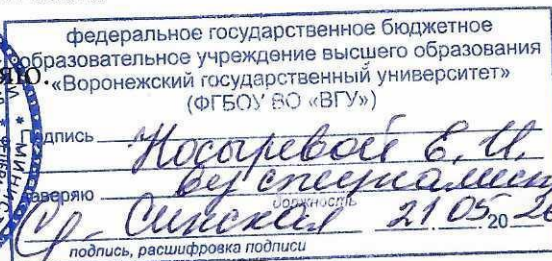 федеральное государственное бюджетное
образовательное учреждение высшего образования
«Воронежский государственный университет»
(ФГБОУ ВО «ВГУ»)
Подпись Носыревой Е. И.
заверяю вед специалист
должность
21 05 20
подпись, расшифровка подписи